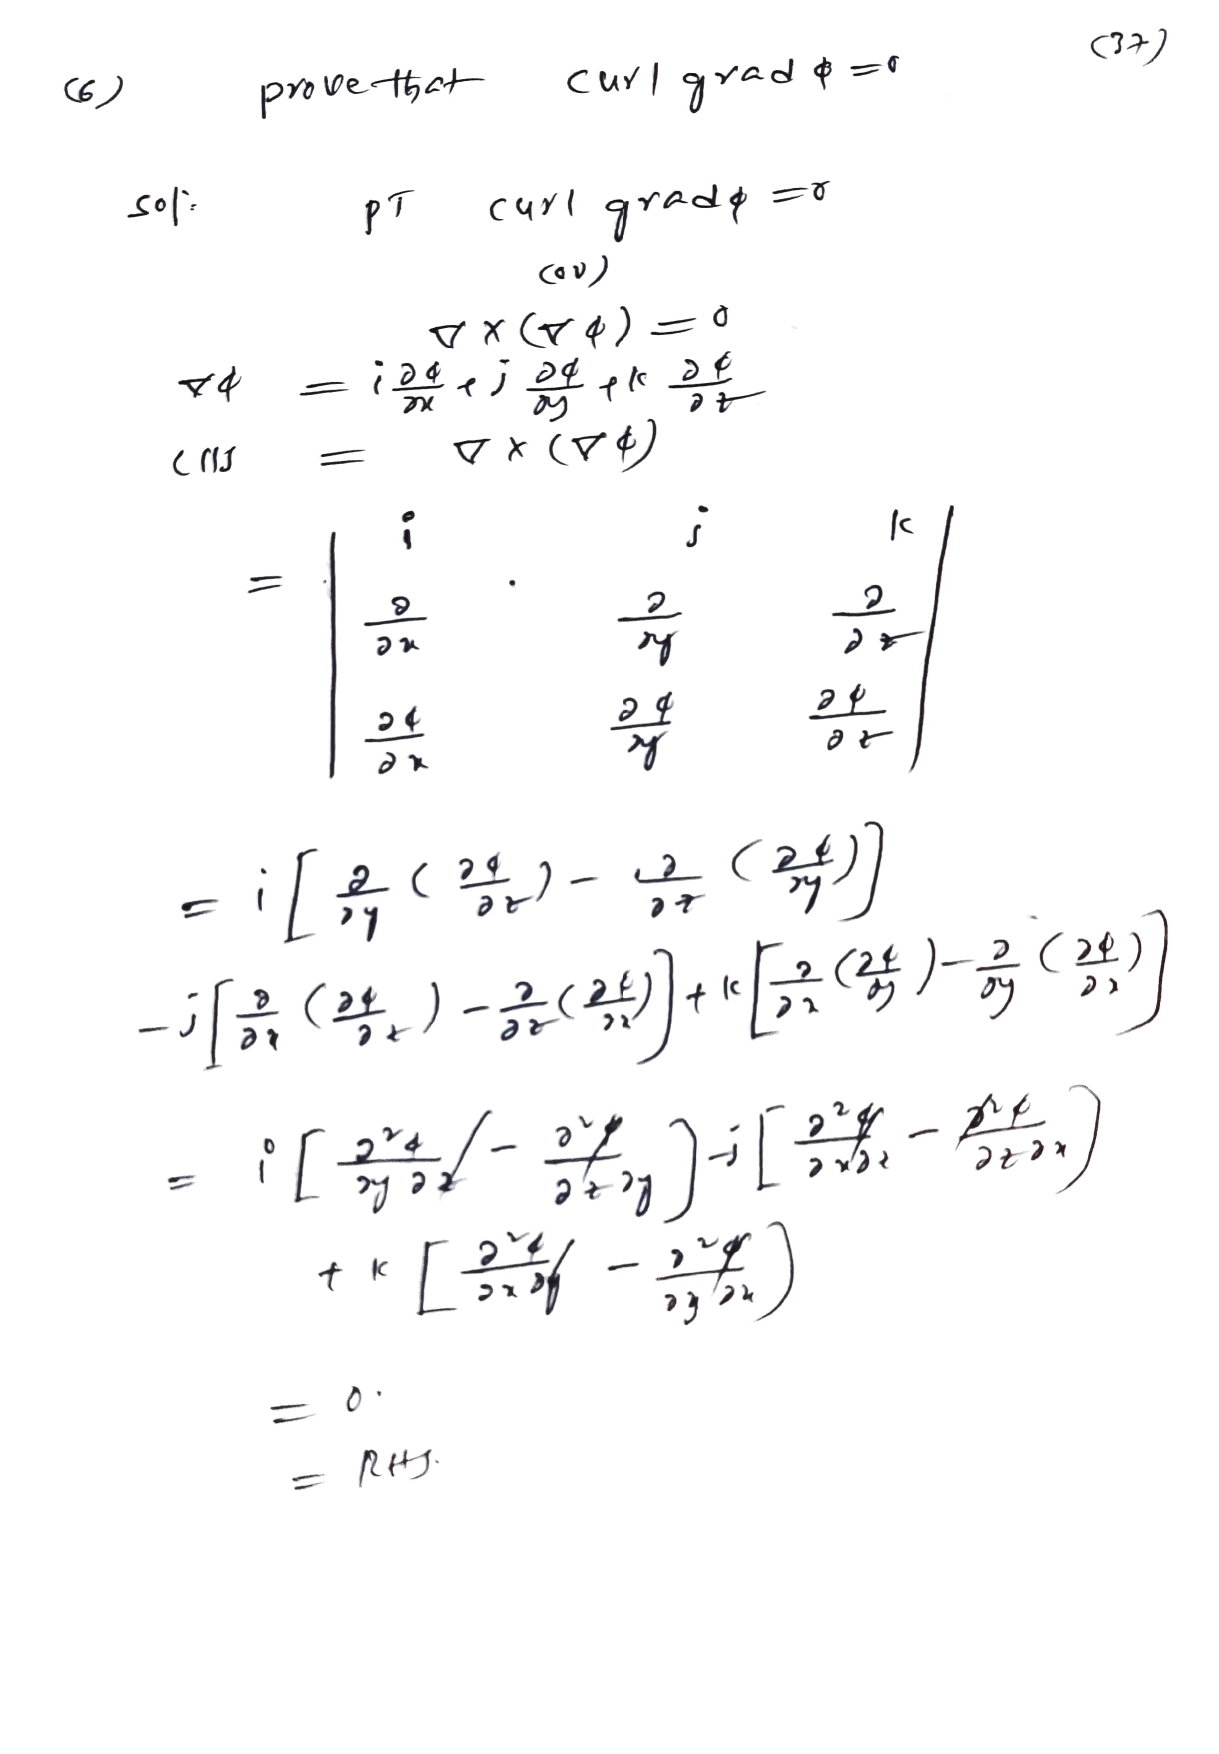 (37)
(6) prove that curl grad φ = 0
sol: PT curl grad φ = 0
(or)
∇ × (∇ φ) = 0
∇φ = i ∂φ/∂x + j ∂φ/∂y + k ∂φ/∂z
LHS = ∇ × (∇ φ)
= | i j k
∂/∂x ∂/∂y ∂/∂z
∂φ/∂x ∂φ/∂y ∂φ/∂z |
= i [ ∂/∂y ( ∂φ/∂z ) − ∂/∂z ( ∂φ/∂y ) ]
− j [ ∂/∂x ( ∂φ/∂z ) − ∂/∂z ( ∂φ/∂x ) ] + k [ ∂/∂x ( ∂φ/∂y ) − ∂/∂y ( ∂φ/∂x ) ]
= i [ ∂²φ/∂y∂z − ∂²φ/∂z∂y ] − j [ ∂²φ/∂x∂z − ∂²φ/∂z∂x ]
+ k [ ∂²φ/∂x∂y − ∂²φ/∂y∂x ]
= 0.
= RHS.